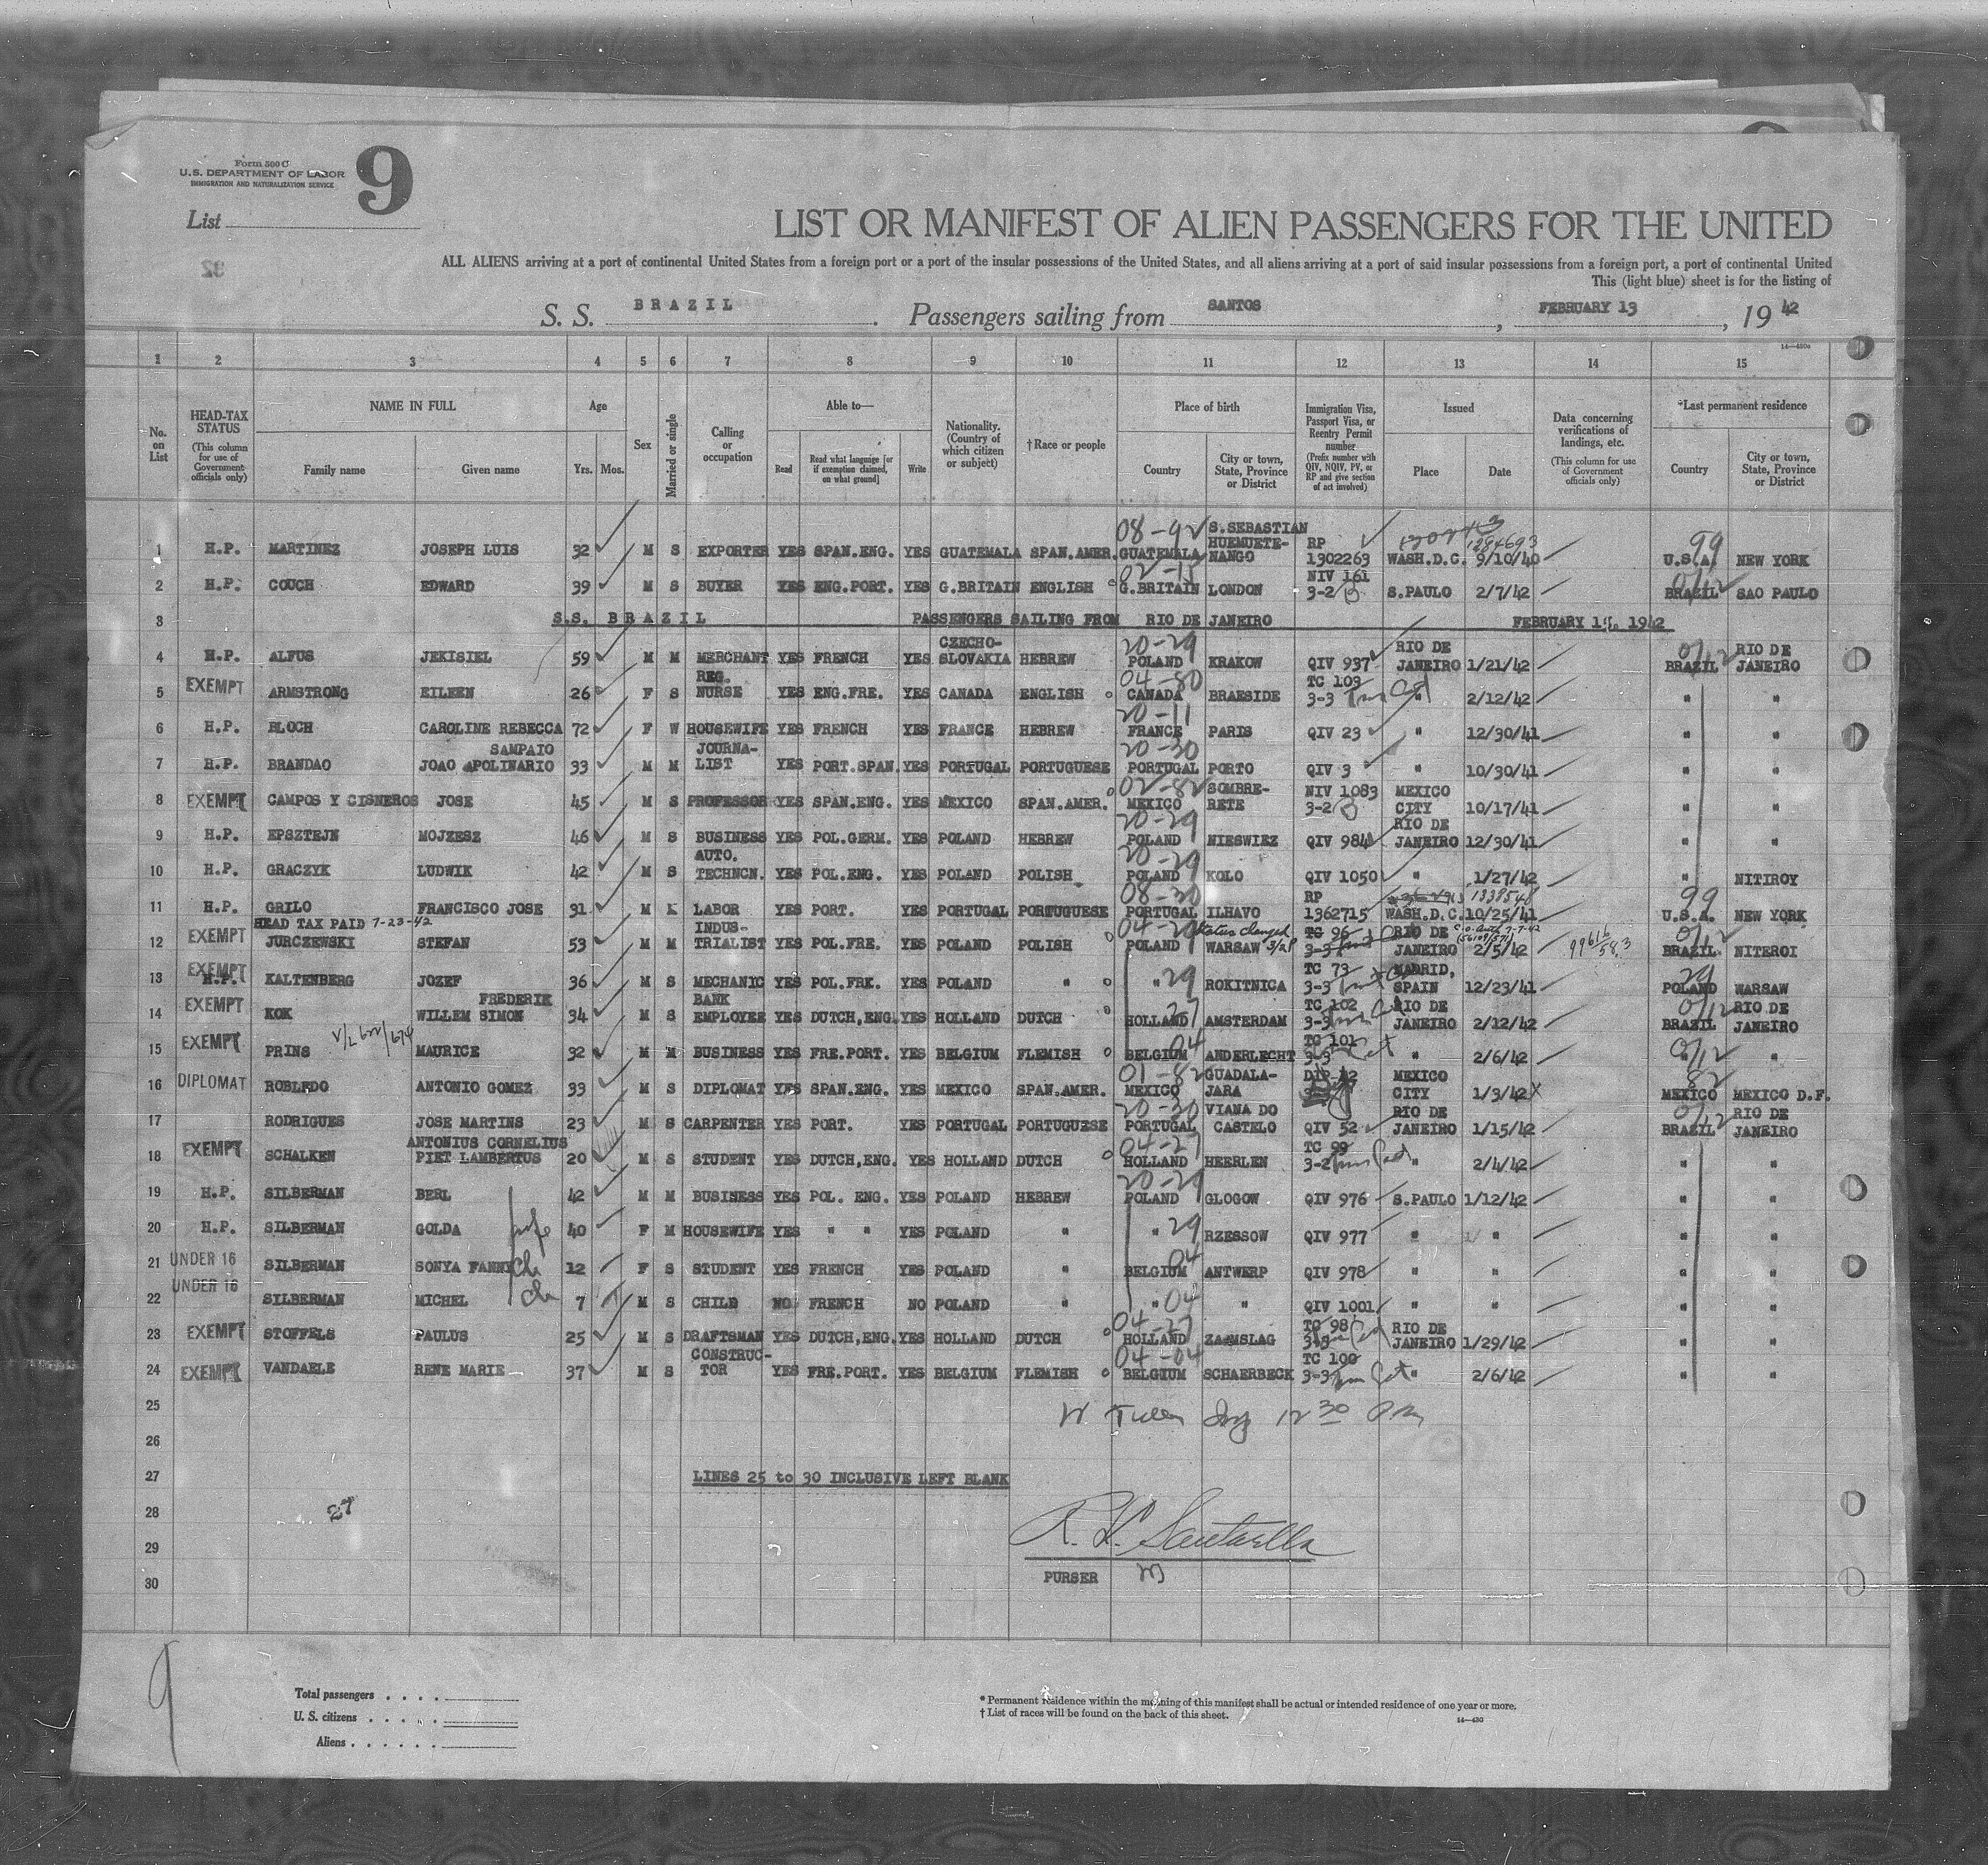 Form 500 C
U.S. DEPARTMENT OF LABOR
IMMIGRATION AND NATURALIZATION SERVICE
9
List
LIST OR MANIFEST OF ALIEN PASSENGERS FOR THE UNITED
ALL ALIENS arriving at a port of continental United States from a foreign port or a port of the insular possessions of the United States, and all aliens arriving at a port of said insular possessions from a foreign port, a port of continental United
This (light blue) sheet is for the listing of
S. S. BRAZIL Passengers sailing from SANTOS, FEBRUARY 13, 19 42
1 2 3 4 5 6 7 8 9 10 11 12 13 14 15
No. on List
HEAD-TAX STATUS (This column for use of Government officials only)
NAME IN FULL Family name Given name
Age Yrs. Mos.
Sex
Married or single
Calling or occupation
Able to— Read Read what language [or if exemption claimed, on what ground] Write
Nationality. (Country of which citizen or subject)
†Race or people
Place of birth Country City or town, State, Province or District
Immigration Visa, Passport Visa, or Reentry Permit number (Prefix number with QIV, NQIV, PV, or RP and give section of act involved)
Issued Place Date
Data concerning verifications of landings, etc. (This column for use of Government officials only)
*Last permanent residence Country City or town, State, Province or District
1 H.P. MARTINEZ JOSEPH LUIS 32 M S EXPORTER YES SPAN.ENG. YES GUATEMALA SPAN.AMER. 08-92 GUATEMALA S.SEBASTIAN HUEMUETE-NANGO RP 1302263 WASH.D.C. 1284693 9/10/40 99 U.S.A. NEW YORK
2 H.P. COUCH EDWARD 39 M S BUYER YES ENG.PORT. YES G.BRITAIN ENGLISH 02-11 G.BRITAIN LONDON NIV 161 3-2 S.PAULO 2/7/42 BRAZIL SAO PAULO
3 S.S. BRAZIL PASSENGERS SAILING FROM RIO DE JANEIRO FEBRUARY 1942
4 H.P. ALFUS JEKISIEL 59 M M MERCHANT YES FRENCH YES CZECHO-SLOVAKIA HEBREW 20-29 POLAND KRAKOW QIV 937 RIO DE JANEIRO 1/21/42 BRAZIL RIO DE JANEIRO
5 EXEMPT ARMSTRONG EILEEN 26 F S REG. NURSE YES ENG.FRE. YES CANADA ENGLISH 04-80 CANADA BRAESIDE TC 103 3-3 " 2/12/42 " "
6 H.P. BLOCH CAROLINE REBECCA 72 F W HOUSEWIFE YES FRENCH YES FRANCE HEBREW 20-11 FRANCE PARIS QIV 23 " 12/30/41 " "
7 H.P. BRANDAO JOAO APOLINARIO SAMPAIO 33 M M JOURNA-LIST YES PORT.SPAN. YES PORTUGAL PORTUGUESE 20-30 PORTUGAL PORTO QIV 3 " 10/30/41 " "
8 EXEMPT CAMPOS Y CISNEROS JOSE 45 M S PROFESSOR YES SPAN.ENG. YES MEXICO SPAN.AMER. 02-82 MEXICO SOMBRE-RETE NIV 1083 3-2 MEXICO CITY 10/17/41 " "
9 H.P. EPSZTEJN MOJZESZ 46 M S BUSINESS YES POL.GERM. YES POLAND HEBREW 20-29 POLAND NIESWIEZ QIV 984 RIO DE JANEIRO 12/30/41 " "
10 H.P. GRACZYK LUDWIK 42 M S AUTO. TECHNCN. YES POL.ENG. YES POLAND POLISH 20-29 POLAND KOLO QIV 1050 " 1/27/42 " NITIROY
11 H.P. GRILO FRANCISCO JOSE 31 M LABOR YES PORT. YES PORTUGAL PORTUGUESE 08-30 PORTUGAL ILHAVO RP 1362715 WASH.D.C. 1339548 10/25/41 99 U.S.A. NEW YORK
HEAD TAX PAID 7-23-42
12 EXEMPT JURCZEWSKI STEFAN 53 M M INDUS-TRIALIST YES POL.FRE. YES POLAND POLISH 04-29 POLAND Status changed WARSAW 3/2 TC 96 3-3 RIO DE JANEIRO 2/5/42 99616/583 BRAZIL NITEROI
13 EXEMPT H.P. KALTENBERG JOZEF 36 M S MECHANIC YES POL.FRE. YES POLAND " " 29 ROKITNICA TC 73 3-3 MADRID, SPAIN 12/23/41 29 POLAND WARSAW
14 EXEMPT KOK WILLEM SIMON FREDERIK 34 M S BANK EMPLOYEE YES DUTCH,ENG. YES HOLLAND DUTCH 27 HOLLAND AMSTERDAM TC 102 3-3 RIO DE JANEIRO 2/12/42 BRAZIL RIO DE JANEIRO
15 EXEMPT PRINS MAURICE 32 M M BUSINESS YES FRE.PORT. YES BELGIUM FLEMISH 04 BELGIUM ANDERLECHT TC 101 3-3 " 2/6/42 " "
16 DIPLOMAT ROBLEDO ANTONIO GOMEZ 33 M S DIPLOMAT YES SPAN.ENG. YES MEXICO SPAN.AMER. 01-82 MEXICO GUADALA-JARA MEXICO CITY 1/3/42 82 MEXICO MEXICO D.F.
17 RODRIGUES JOSE MARTINS 23 M S CARPENTER YES PORT. YES PORTUGAL PORTUGUESE 20-30 PORTUGAL VIANA DO CASTELO QIV 52 RIO DE JANEIRO 1/15/42 BRAZIL RIO DE JANEIRO
18 EXEMPT SCHALKEN ANTONIUS CORNELIUS PIET LAMBERTUS 20 M S STUDENT YES DUTCH,ENG. YES HOLLAND DUTCH 04-27 HOLLAND HEERLEN TC 99 3-2 " 2/4/42 " "
19 H.P. SILBERMAN BERL 42 M M BUSINESS YES POL. ENG. YES POLAND HEBREW 20-29 POLAND GLOGOW QIV 976 S.PAULO 1/12/42 " "
20 H.P. SILBERMAN GOLDA wife 40 F M HOUSEWIFE YES " " YES POLAND " " 29 RZESSOW QIV 977 " " " "
21 UNDER 16 SILBERMAN SONYA FANNY ch 12 F S STUDENT YES FRENCH YES POLAND " 04 BELGIUM ANTWERP QIV 978 " " " "
22 UNDER 16 SILBERMAN MICHEL ch 7 M S CHILD NO FRENCH NO POLAND " " 04 " QIV 1001 " " " "
23 EXEMPT STOFFELS PAULUS 25 M S DRAFTSMAN YES DUTCH,ENG. YES HOLLAND DUTCH 04-27 HOLLAND ZAAMSLAG TC 98 3-3 RIO DE JANEIRO 1/29/42 " "
24 EXEMPT VANDAELE RENE MARIE 37 M S CONSTRUC-TOR YES FRE.PORT. YES BELGIUM FLEMISH 04-04 BELGIUM SCHAERBECK TC 100 3-3 " 2/6/42 " "
25
26
27 LINES 25 to 30 INCLUSIVE LEFT BLANK
28 27
29
30 PURSER
9
Total passengers
U. S. citizens
Aliens
* Permanent residence within the meaning of this manifest shall be actual or intended residence of one year or more.
† List of races will be found on the back of this sheet.
14—430